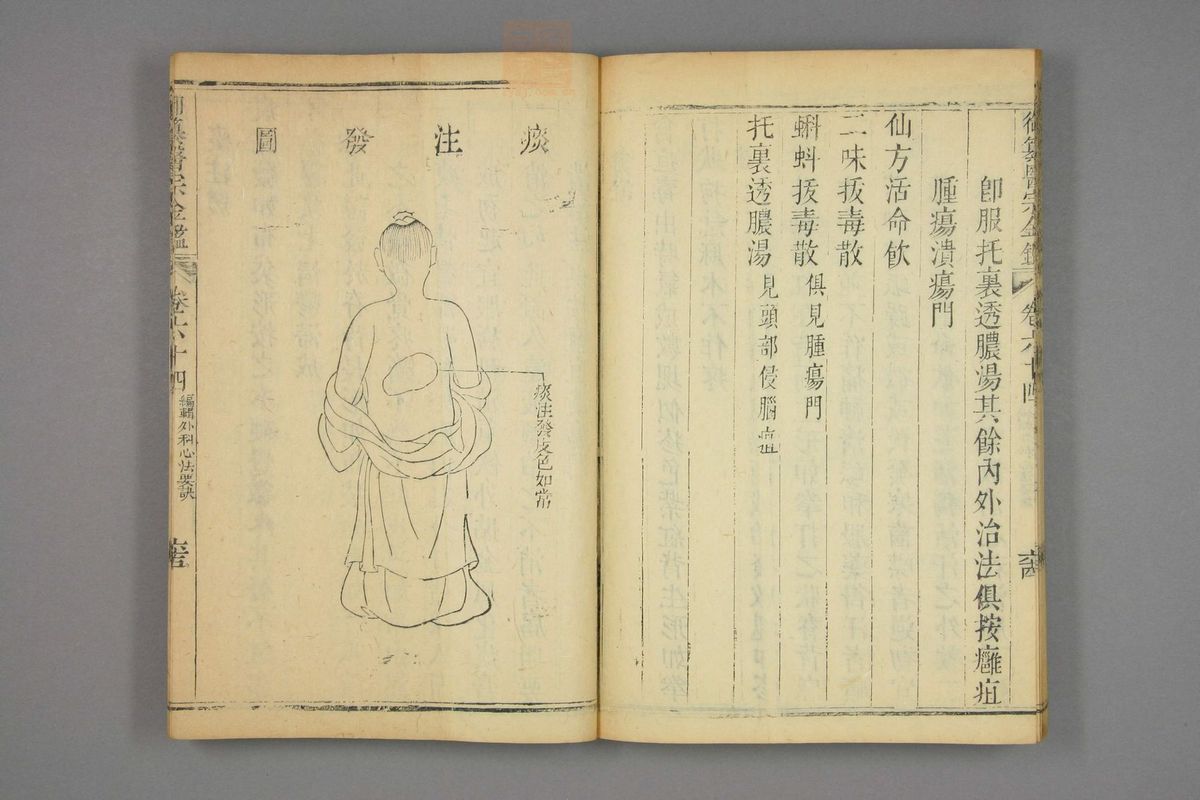 御纂醫宗金鑑 卷六十四
卽服托裏透膿湯其餘內外治法俱按癰疽
腫瘍潰瘍門
仙方活命飲
二味拔毒散
蝌蚪拔毒散 俱見腫瘍門
托裏透膿湯 見頭部侵腦疽
痰注發圖
痰注發皮色如常
御纂醫宗金鑑 卷六十四 編輯外科心法要訣